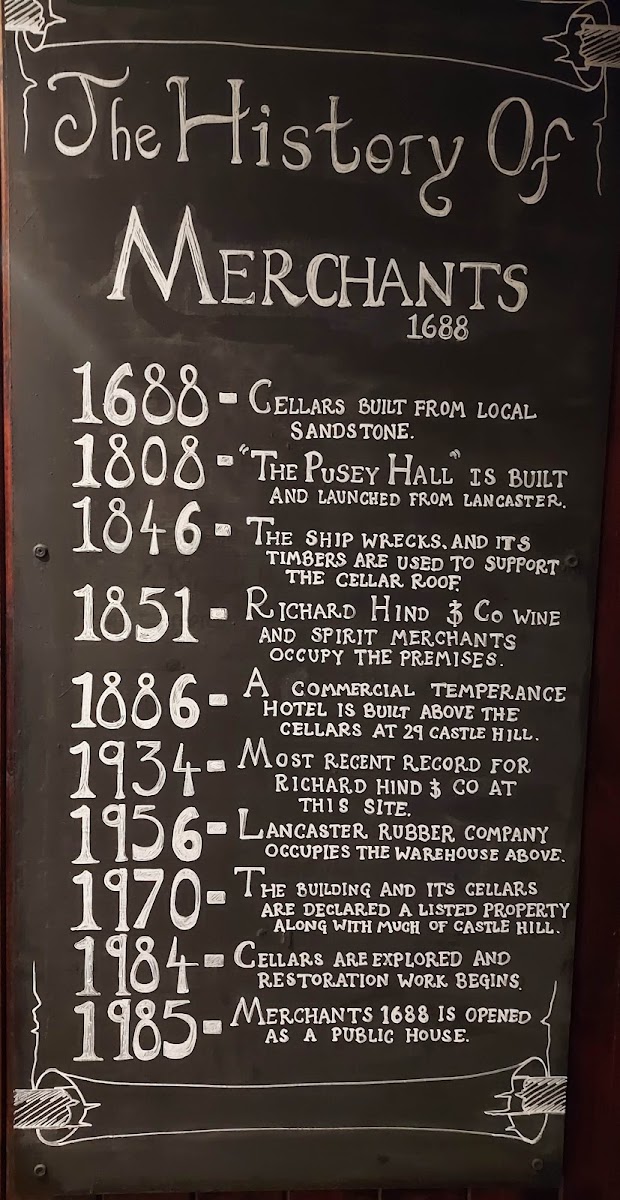 The History Of
MERCHANTS
1688
1688 - CELLARS BUILT FROM LOCAL
SANDSTONE.
1808 - "THE PUSEY HALL" IS BUILT
AND LAUNCHED FROM LANCASTER.
1846 - THE SHIP WRECKS, AND ITS
TIMBERS ARE USED TO SUPPORT
THE CELLAR ROOF.
1851 - RICHARD HIND & CO WINE
AND SPIRIT MERCHANTS
OCCUPY THE PREMISES.
1886 - A COMMERCIAL TEMPERANCE
HOTEL IS BUILT ABOVE THE
CELLARS AT 29 CASTLE HILL.
1934 - MOST RECENT RECORD FOR
RICHARD HIND & CO AT
THIS SITE.
1956 - LANCASTER RUBBER COMPANY
OCCUPIES THE WAREHOUSE ABOVE.
1970 - THE BUILDING AND ITS CELLARS
ARE DECLARED A LISTED PROPERTY
ALONG WITH MUCH OF CASTLE HILL.
1984 - CELLARS ARE EXPLORED AND
RESTORATION WORK BEGINS.
1985 - MERCHANTS 1688 IS OPENED
AS A PUBLIC HOUSE.